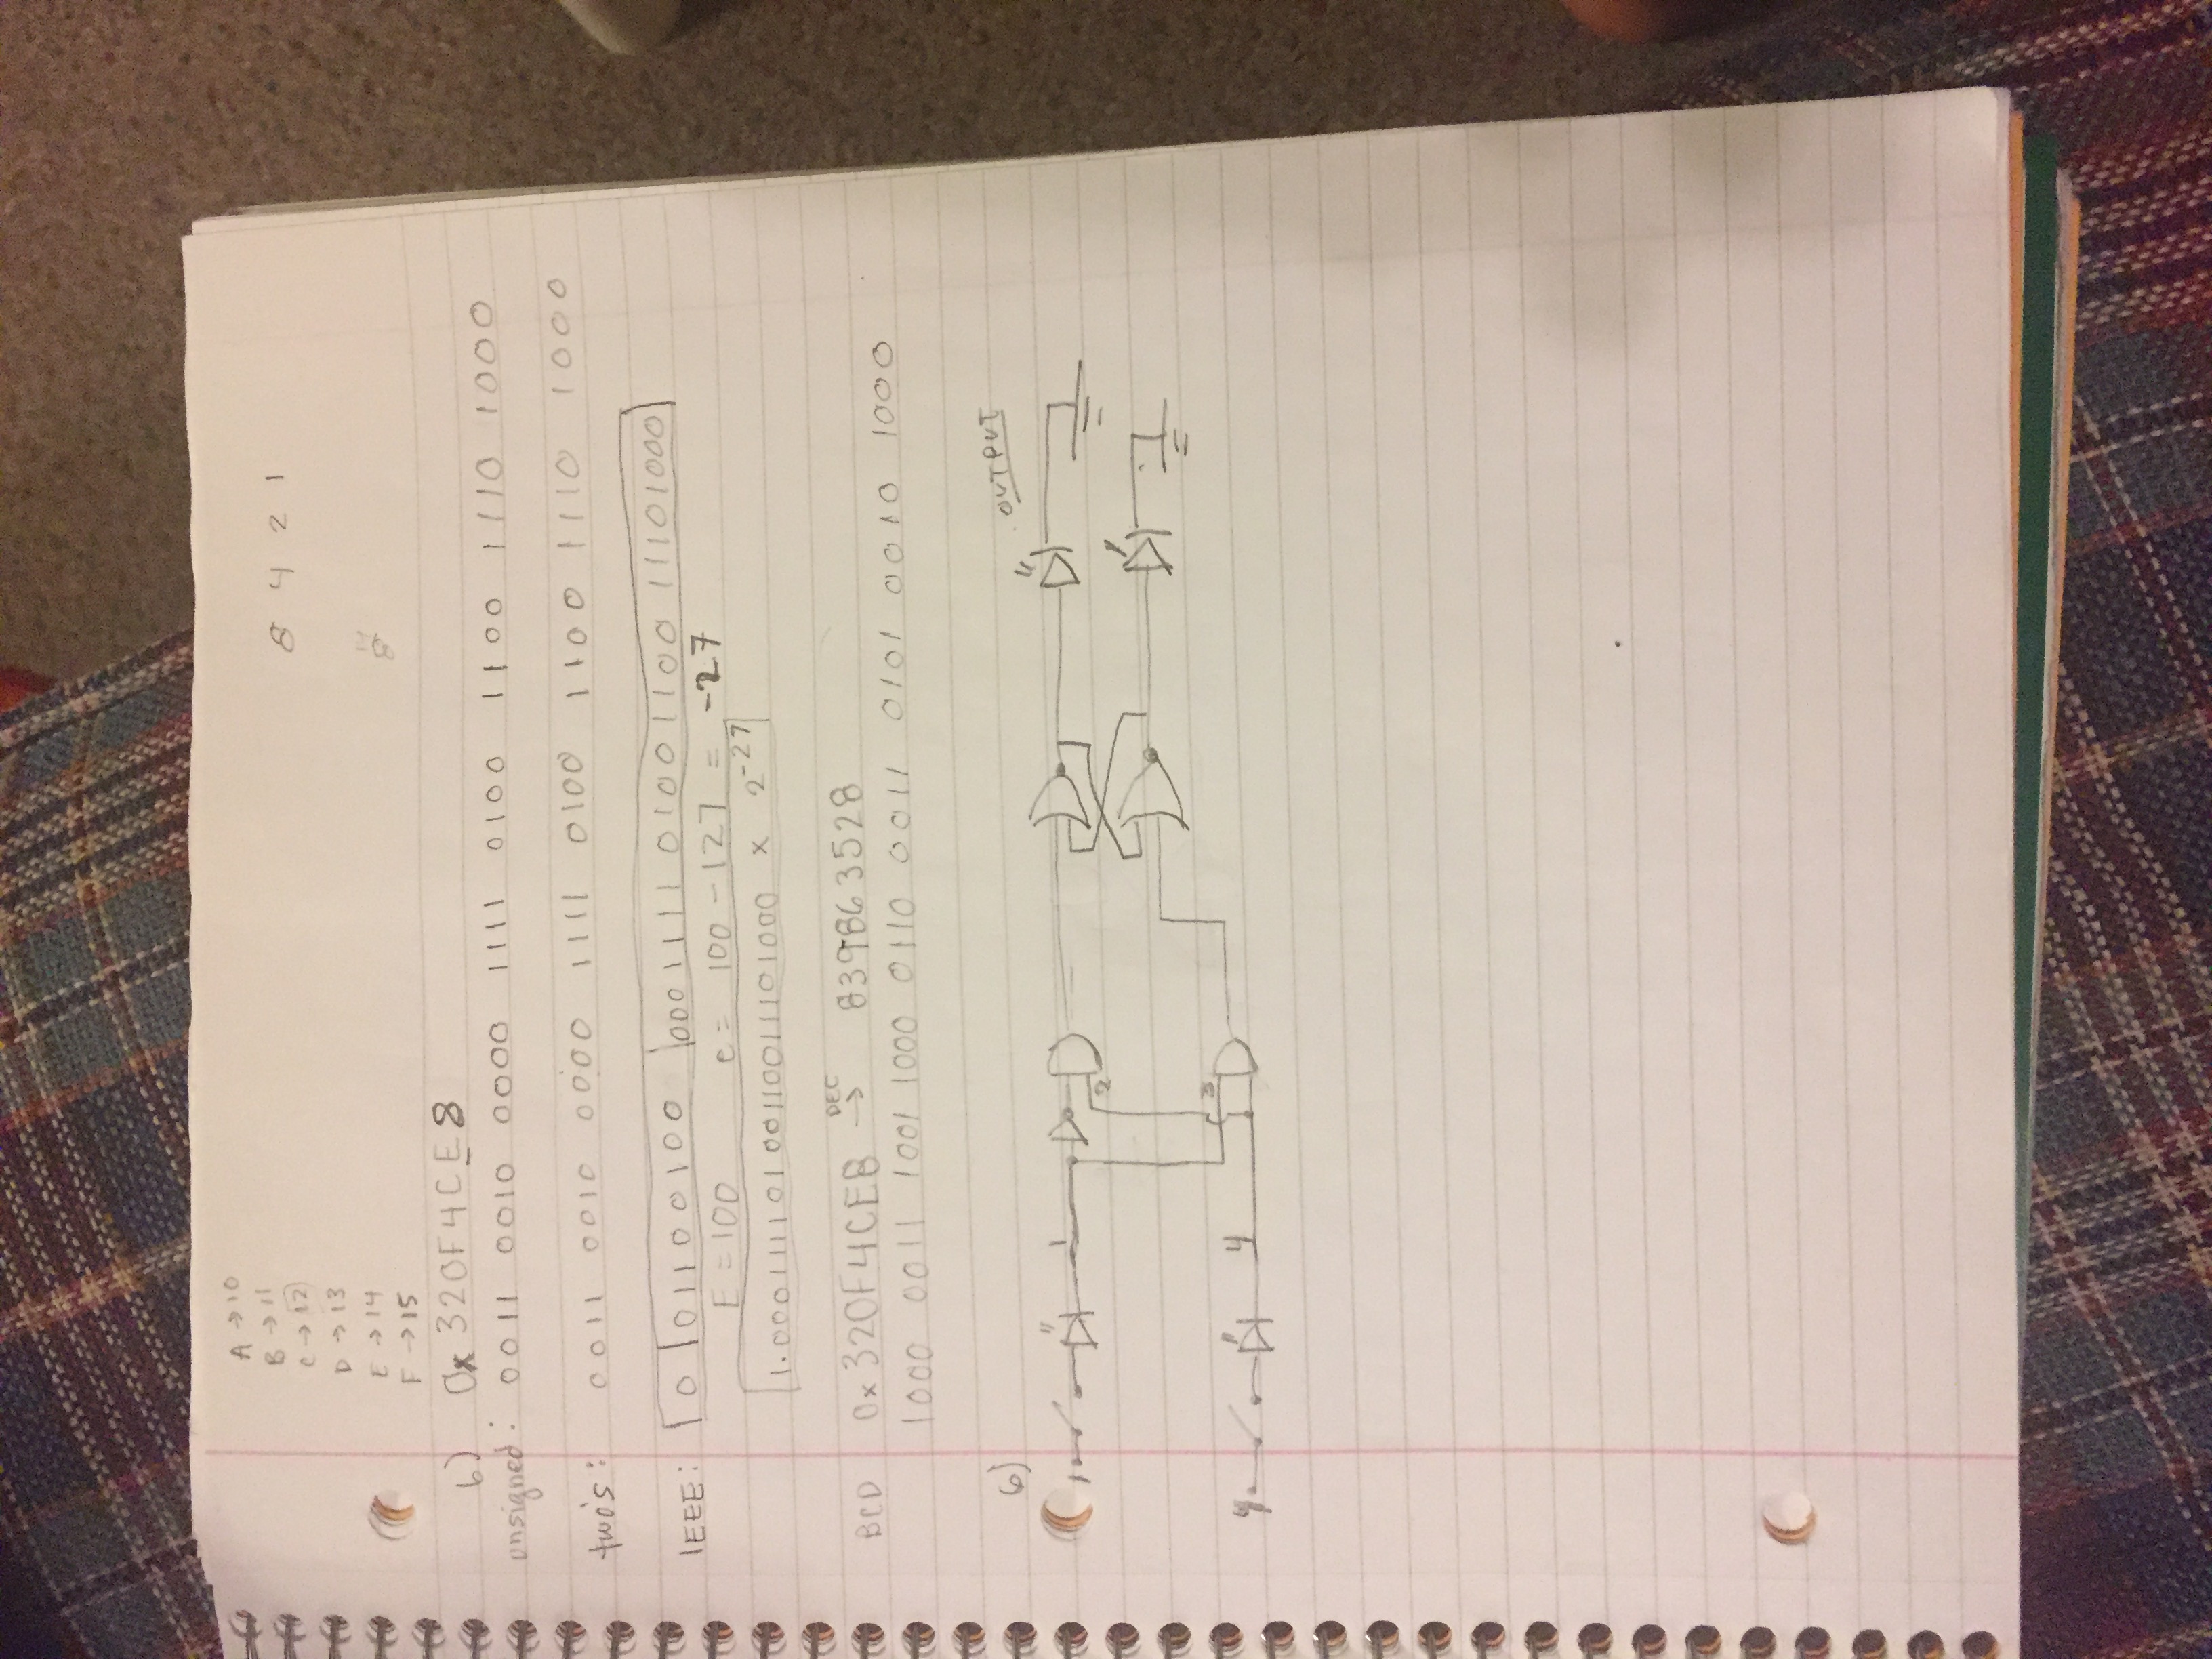 A → 10
B → 11
C → 12
D → 13
E → 14
F → 15
8 4 2 1
6) 0x 320F4CE8
unsigned: 0011 0010 0000 1111 0100 1100 1110 1000
two's: 0011 0010 0000 1111 0100 1100 1110 1000
IEEE: 0 01100100 00011110100110011101000
E = 100 e = 100 - 127 = -27
1.00011110100110011101000 x 2^-27
BCD 0x320F4CE8 DEC → 839863528
1000 0011 1001 1000 0110 0011 0101 0010 1000
6)
OUTPUT
1 1
2
3
4 4